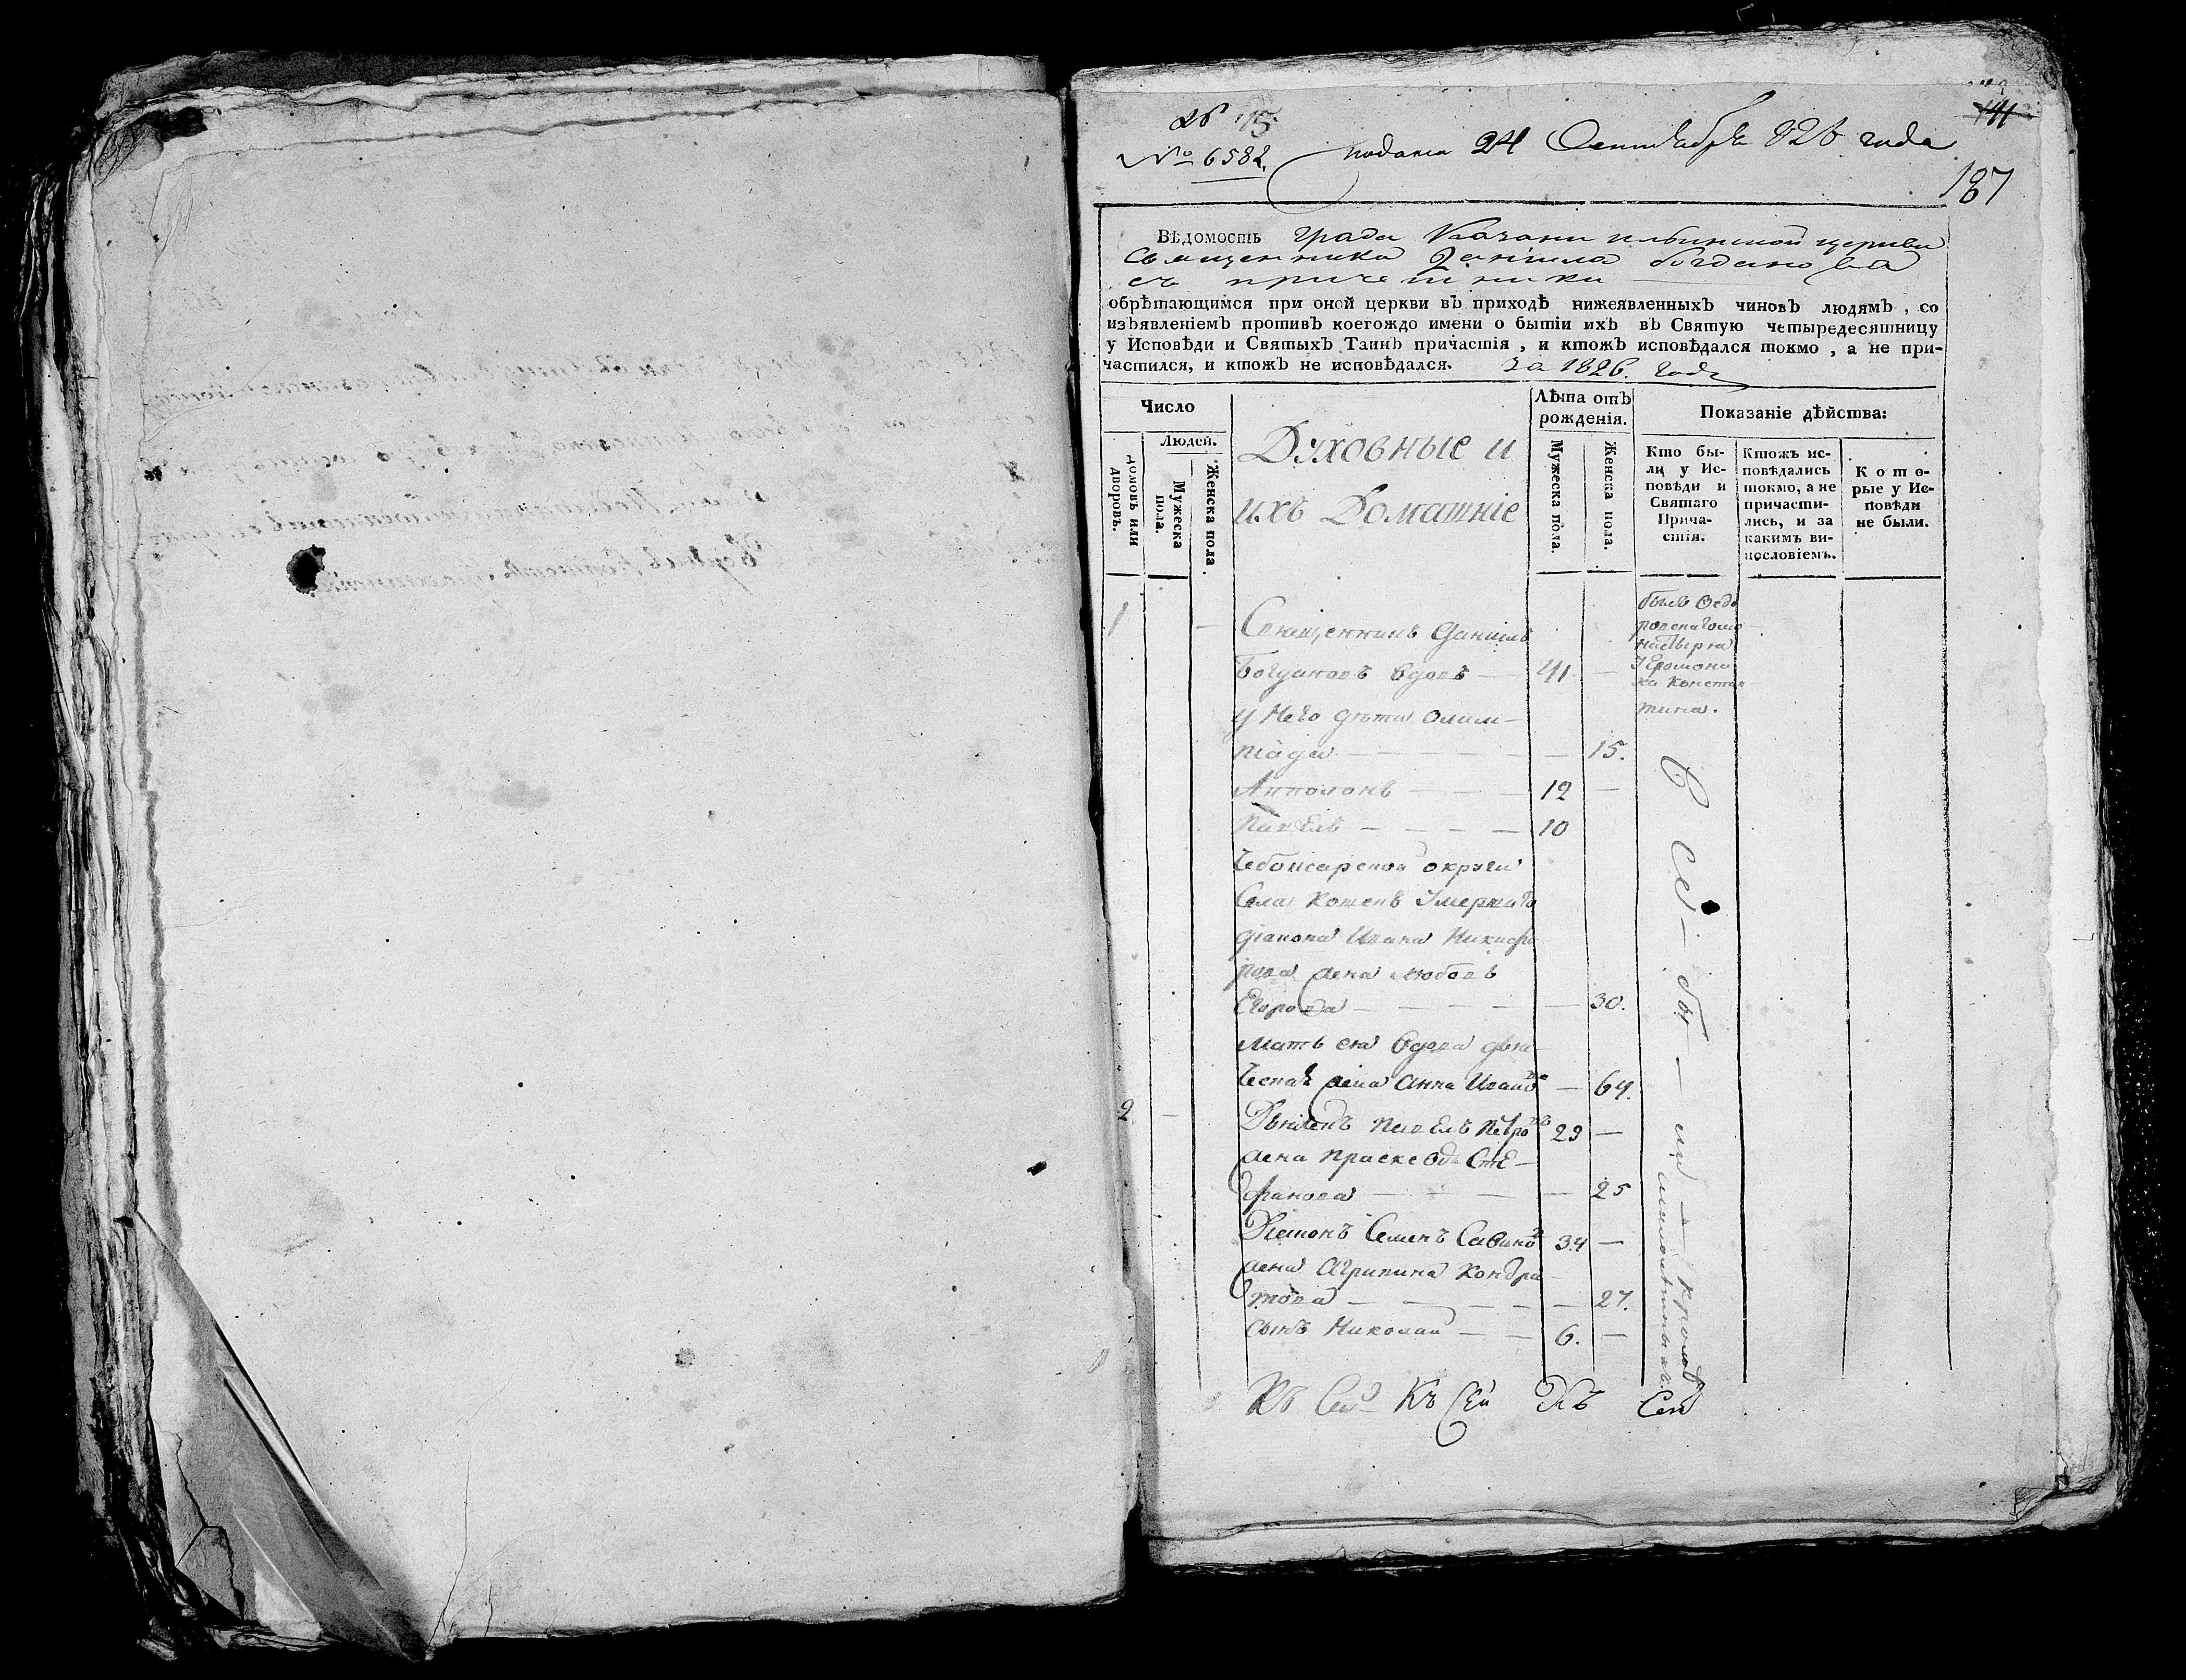 № 6582.
подана 24 Сентября 826 года
187
Вѣдомость града Казани ильинской церкви
Священника Даніила богданова
съ причетники
обрѣтающимся при оной церкви въ приходѣ нижеявленныхъ чиновъ людямъ, со
изъявленіемъ противъ коегождо имени о бытіи ихъ въ Святую четыредесятницу
у Исповѣди и Святыхъ Таинъ причастія, и ктожъ исповѣдался токмо, а не при-
частился, и ктожъ не исповѣдался. За 1826. годъ
Число
Людей.
домовъ или дворовъ.
Мужеска пола.
Женска пола.
Духовные и
ихъ Домашніе
Лѣта отъ
рожденія.
Мужеска пола.
Женска пола.
Показаніе дѣйства:
Кто бы-
ли у Ис-
повѣди и
Святаго
Прича-
стія.
Ктожъ ис-
повѣдались
токмо, а не
причасти-
лись, и за
какимъ ви-
нословіемъ.
Кото-
рые у Ис-
повѣди
не были.
1
Священникъ Даніилъ
Богдановъ вдовъ 41
у Него дѣти Олим-
піада 15.
Апполонъ 12
Павелъ 10
Чебоксарской округи
Села умершаго
діакона Ивана Никифо
рова жена Любовь
Егорова 30.
мать ея вдова дьяч-
ческая жена Анна Иванова 64.
2
Дьячекъ Павелъ Петровъ 29
жена Праскева Сте-
фанова 25
Діаконъ Семенъ Савиновъ 34
жена Агрипина Кондра-
това 27.
сынъ Николай 6.
былъ Ѳедо
ровскаго мо
настыря
Іеромона
ха Констан
тина.
Всѣ были кромѣ
малолѣтныхъ.
Къ Сей Къ Сей Къ Сей